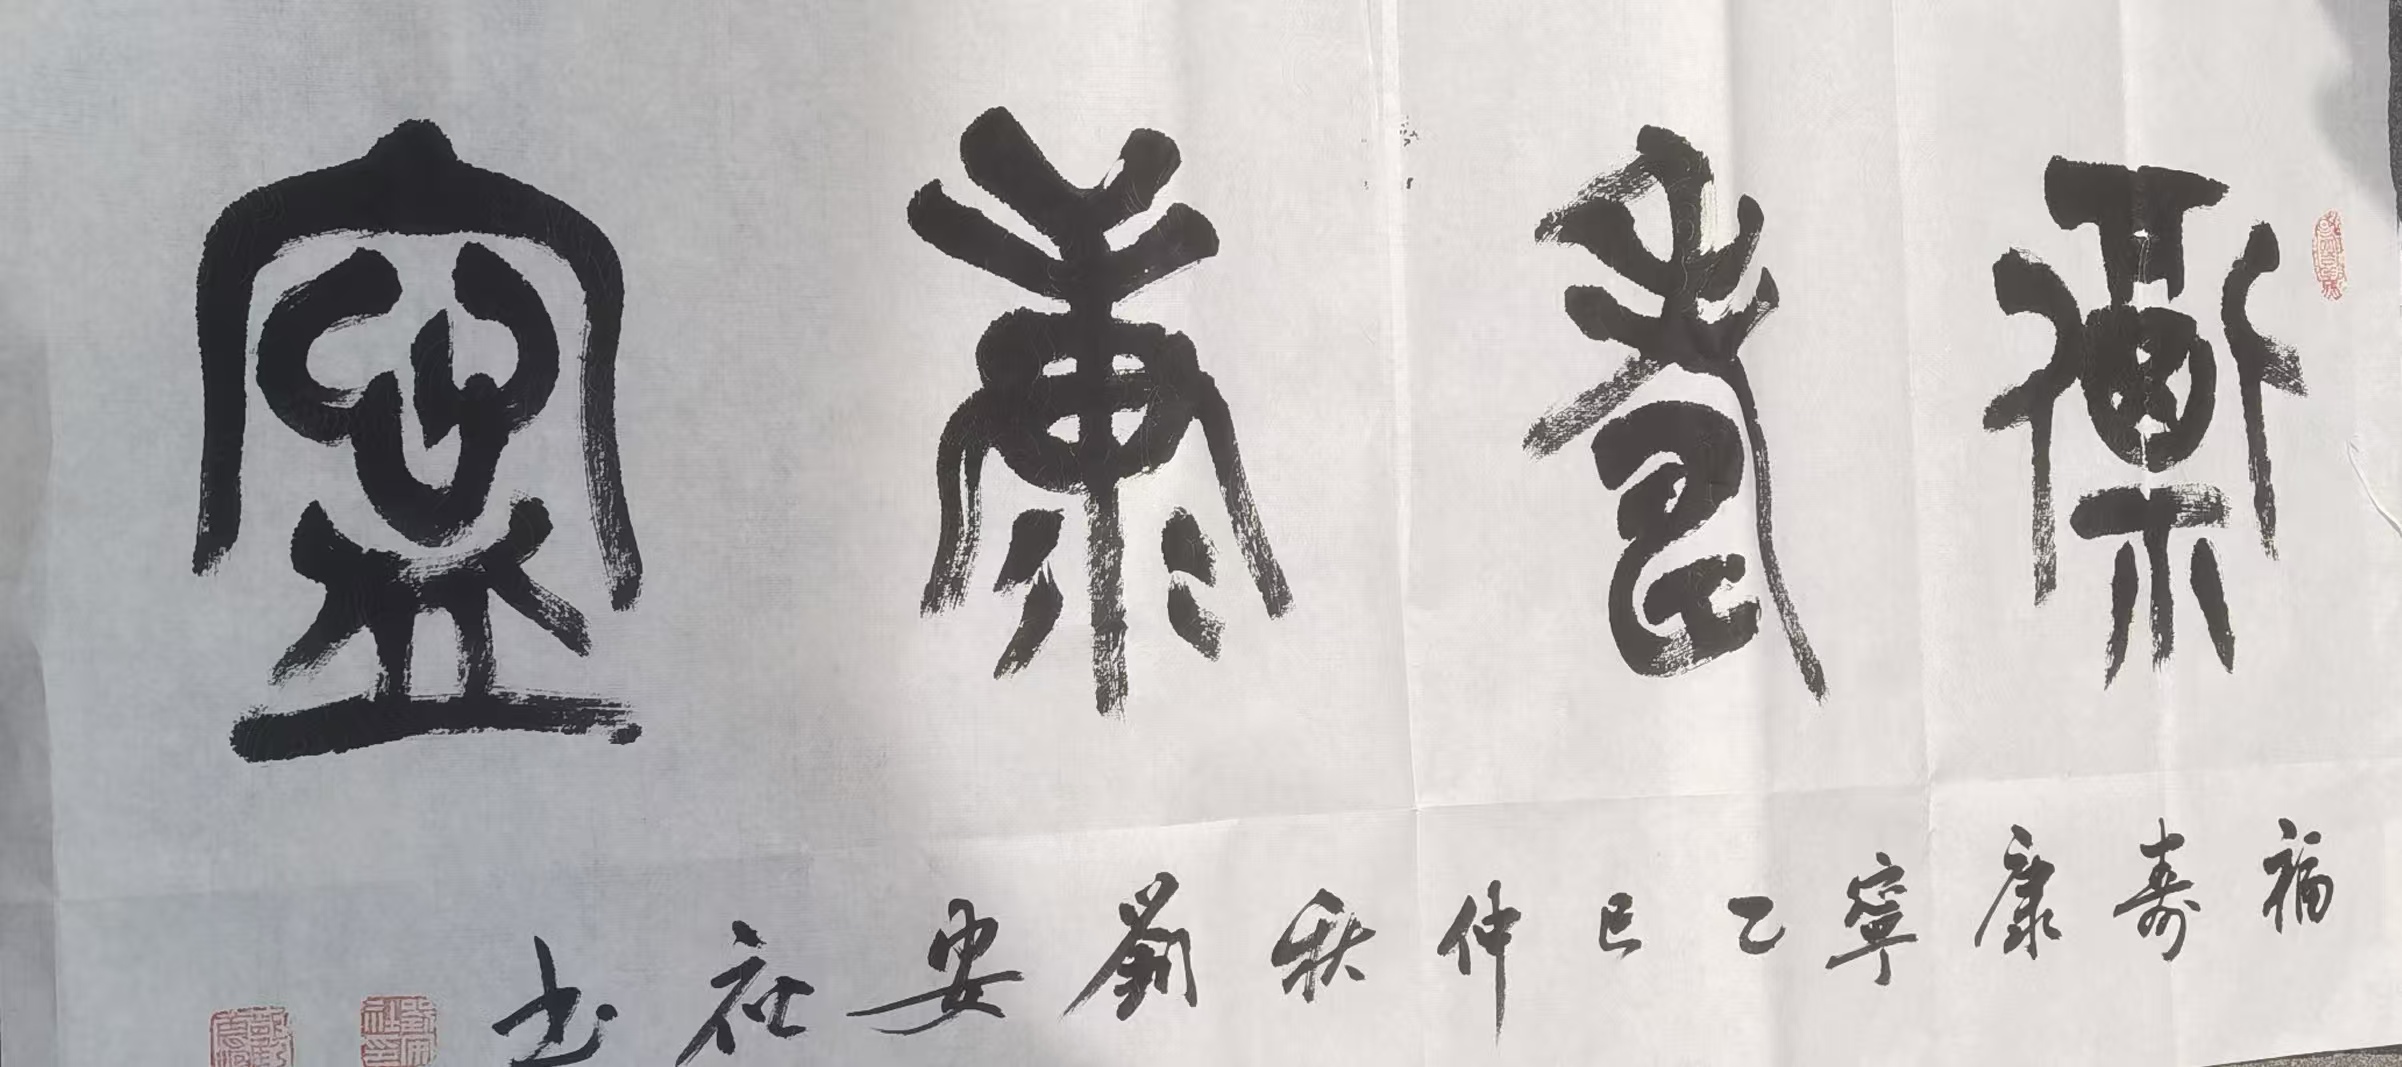 福壽康寧
福寿康寧乙巳仲秋劉安社书